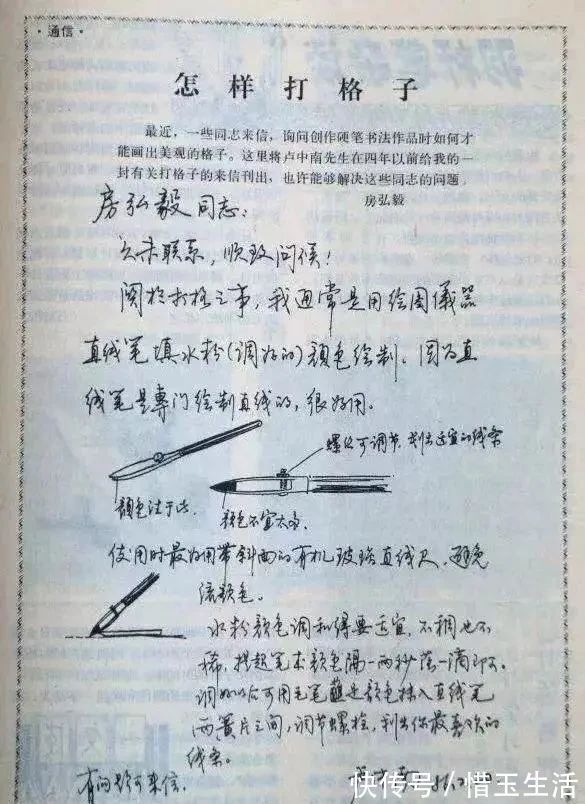 ·通信·
怎样打格子
最近，一些同志来信，询问创作硬笔书法作品时如何才
能画出美观的格子。这里将卢中南先生在四年以前给我的一
封有关打格子的来信刊出，也许能够解决这些同志的问题。
房弘毅
房弘毅同志：
久未联系，顺致问候！
关於打格之事，我通常是用绘图儀器
直线笔填水粉（调好的）颜色绘制、因为直
线笔是專门绘制直线的，很好用。
螺丝可调节，划出适宜的线条
颜色注于此．
颜色不宜太多．
使用时最好用带斜面的有机玻璃直线尺，避免
颜色。
水粉颜色调和得要适宜，不稠也不
稀，提起笔来颜色隔一两秒落一滴即可。
调好以后可用毛笔蘸进颜色抹入直线笔
两簧片之间，调节螺栓，划出你最喜欢的
线条。
有问题可来信．
快传号／惜玉生活